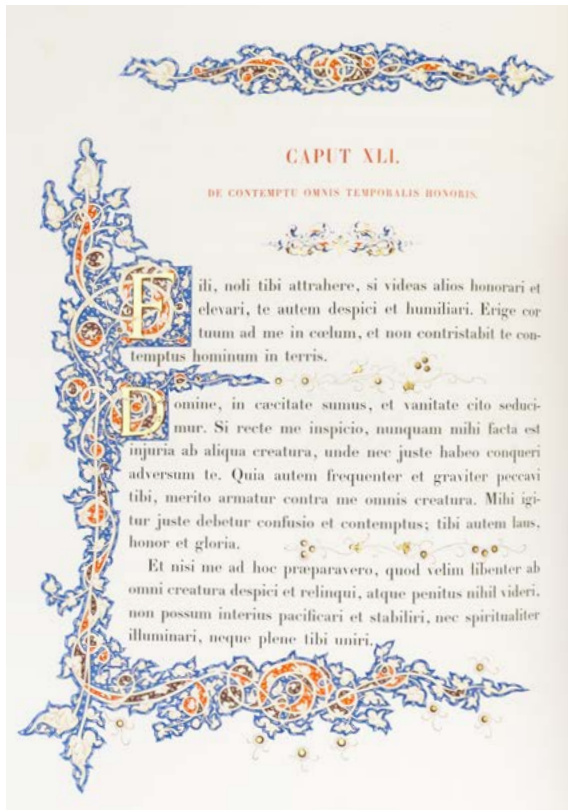 CAPUT XLI.
DE CONTEMPTU OMNIS TEMPORALIS HONORIS.
Fili, noli tibi attrahere, si videas alios honorari et
elevari, te autem despici et humiliari. Erige cor
tuum ad me in cœlum, et non contristabit te con-
temptus hominum in terris.
Domine, in cæcitate sumus, et vanitate cito seduci-
mur. Si recte me inspicio, nunquam mihi facta est
injuria ab aliqua creatura, unde nec juste habeo conqueri
adversum te. Quia autem frequenter et graviter peccavi
tibi, merito armatur contra me omnis creatura. Mihi igi-
tur juste debetur confusio et contemptus; tibi autem laus,
honor et gloria.
Et nisi me ad hoc præparavero, quod velim libenter ab
omni creatura despici et relinqui, atque penitus nihil videri,
non possum interius pacificari et stabiliri, nec spiritualiter
illuminari, neque plene tibi uniri.